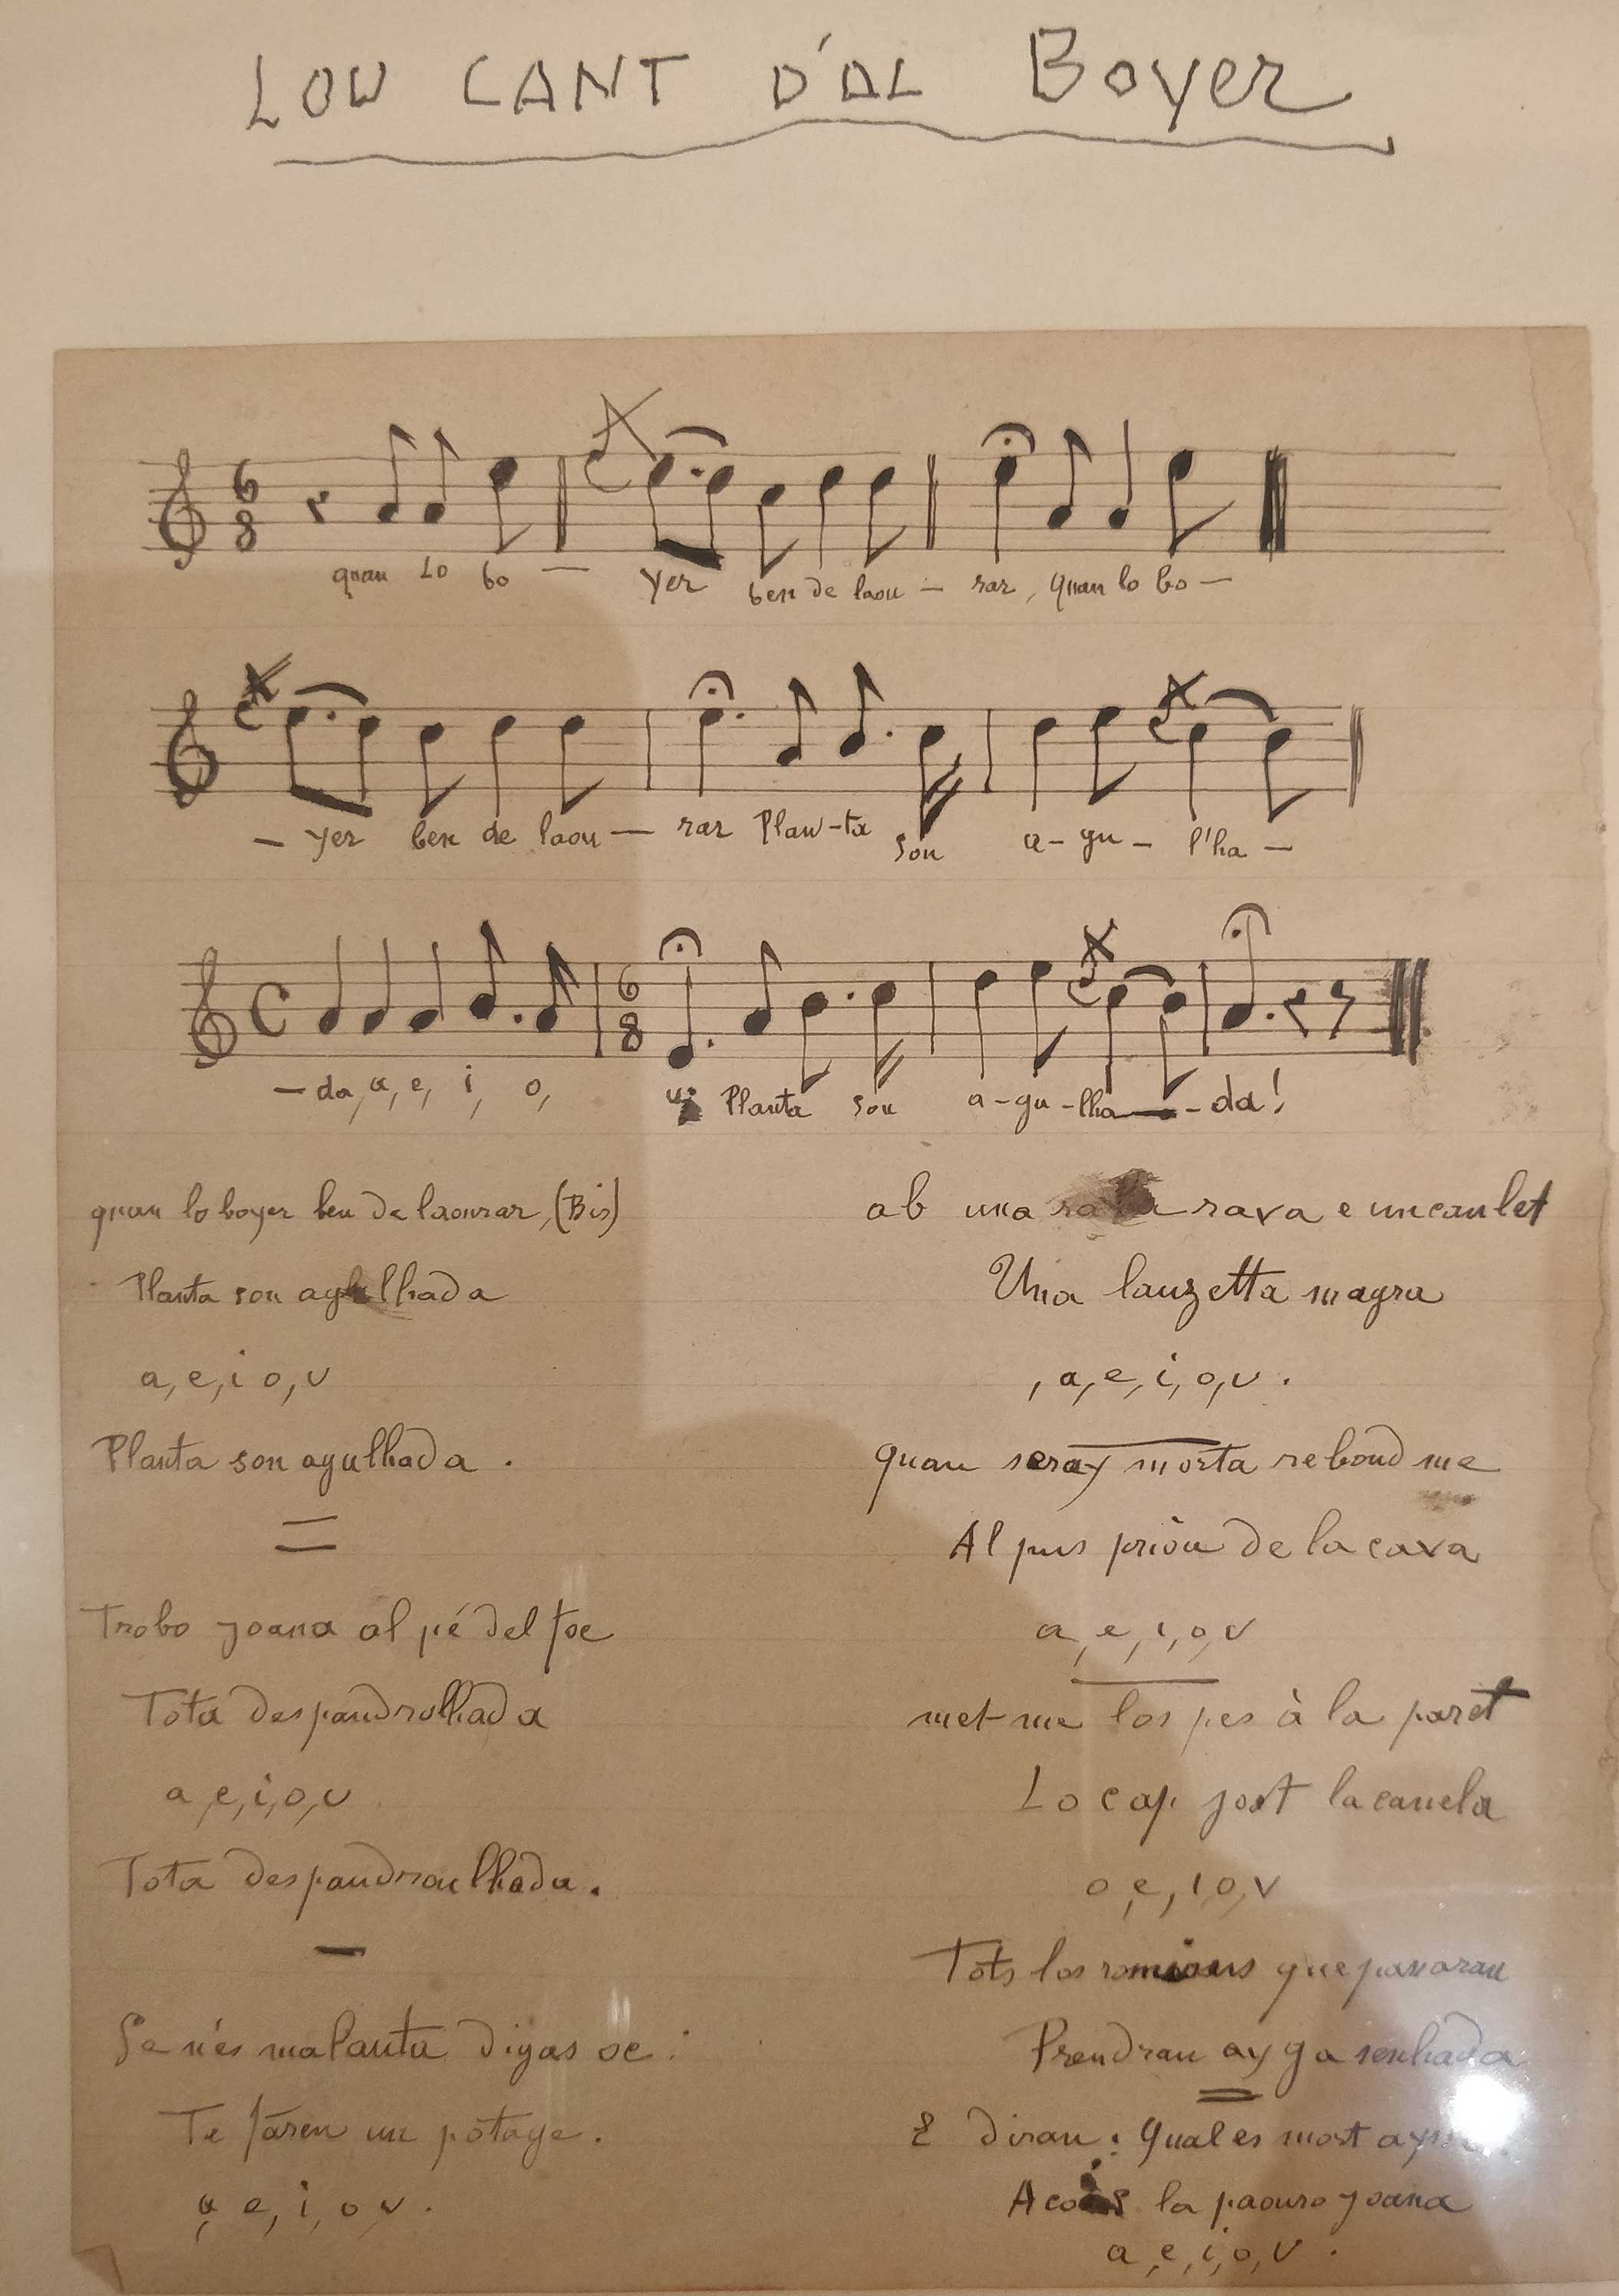 LOU CANT D'AL Boyer
6
8
quan Lo bo — yer ben de laou — rar, quan lo bo —
— yer ben de laou — rar Plan-ta son a-gu- l'ha —
C 6
8
— da, a, e, i, o, u; Planta son a-gu-lha—-da!
quan lo boyer ben de laourar, (Bis)
Planta son agulhada
a, e, i o, u
Planta son agulhada.
Trobo joana al pé del foc
Tota despandrolhada
a, e, i, o, u
Tota despandroulhada.
Se n'és malauta digas oc:
Te faren un potage.
a, e, i, o, v.
ab una rava e un caulet
Una lauzetta magra
, a, e, i, o, u.
quan seray morta rebond me
Al pus priou de la cava
a, e, i, o, v
met-me los pes à la paret
Lo cap jost la canela
a, e, i o, v
Tots los romious que passaran
Prendran ayga senhada
E diran: Qual es mort
Aco es la paouro joana
a, e, i, o, v.